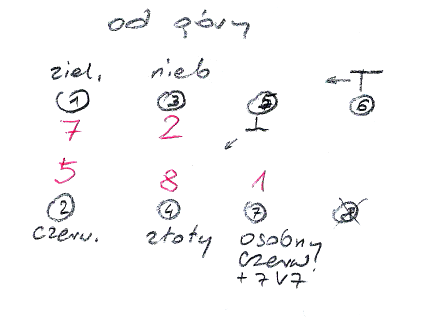 od góry
ziel. nieb
1 3 5 6
7 2
5 8 1
2 4 7 8
czerw. złoty osobny
czerw!
+ 7 V 7